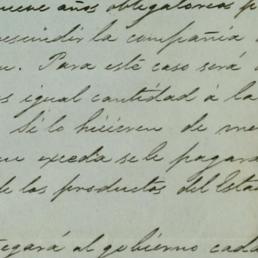 nueve años obligatorios p
rescindir la compañía
Para este caso será
igual cantidad á la
Si lo hicieren de me
exceda se le pagará
de los productos del Esta
egará al gobierno cada